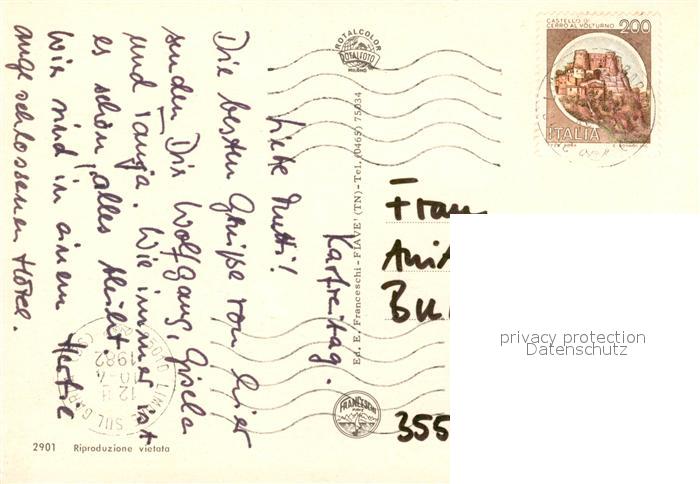 Karfreitag.
Liebe Mutti!
Die besten Grüße von hier
senden Dir Wolfgang, Gisela
und Tanja. Wie immer ist
es schön, alles blüht.
Wir sind in einem
angeschlossenen Hotel.
Frau
Bu
355
CASTELLO DI
CERRO AL VOLTURNO 200
ITALIA
ROTALCOLOR
ROTALFOTO
MILANO
Ed. E. Franceschi - FIAVE' (TN) - Tel. (0465) 75034
FRANCESCHI
LIM SUL GAR
12
10-4
1982
2901 Riproduzione vietata
privacy protection
Datenschutz